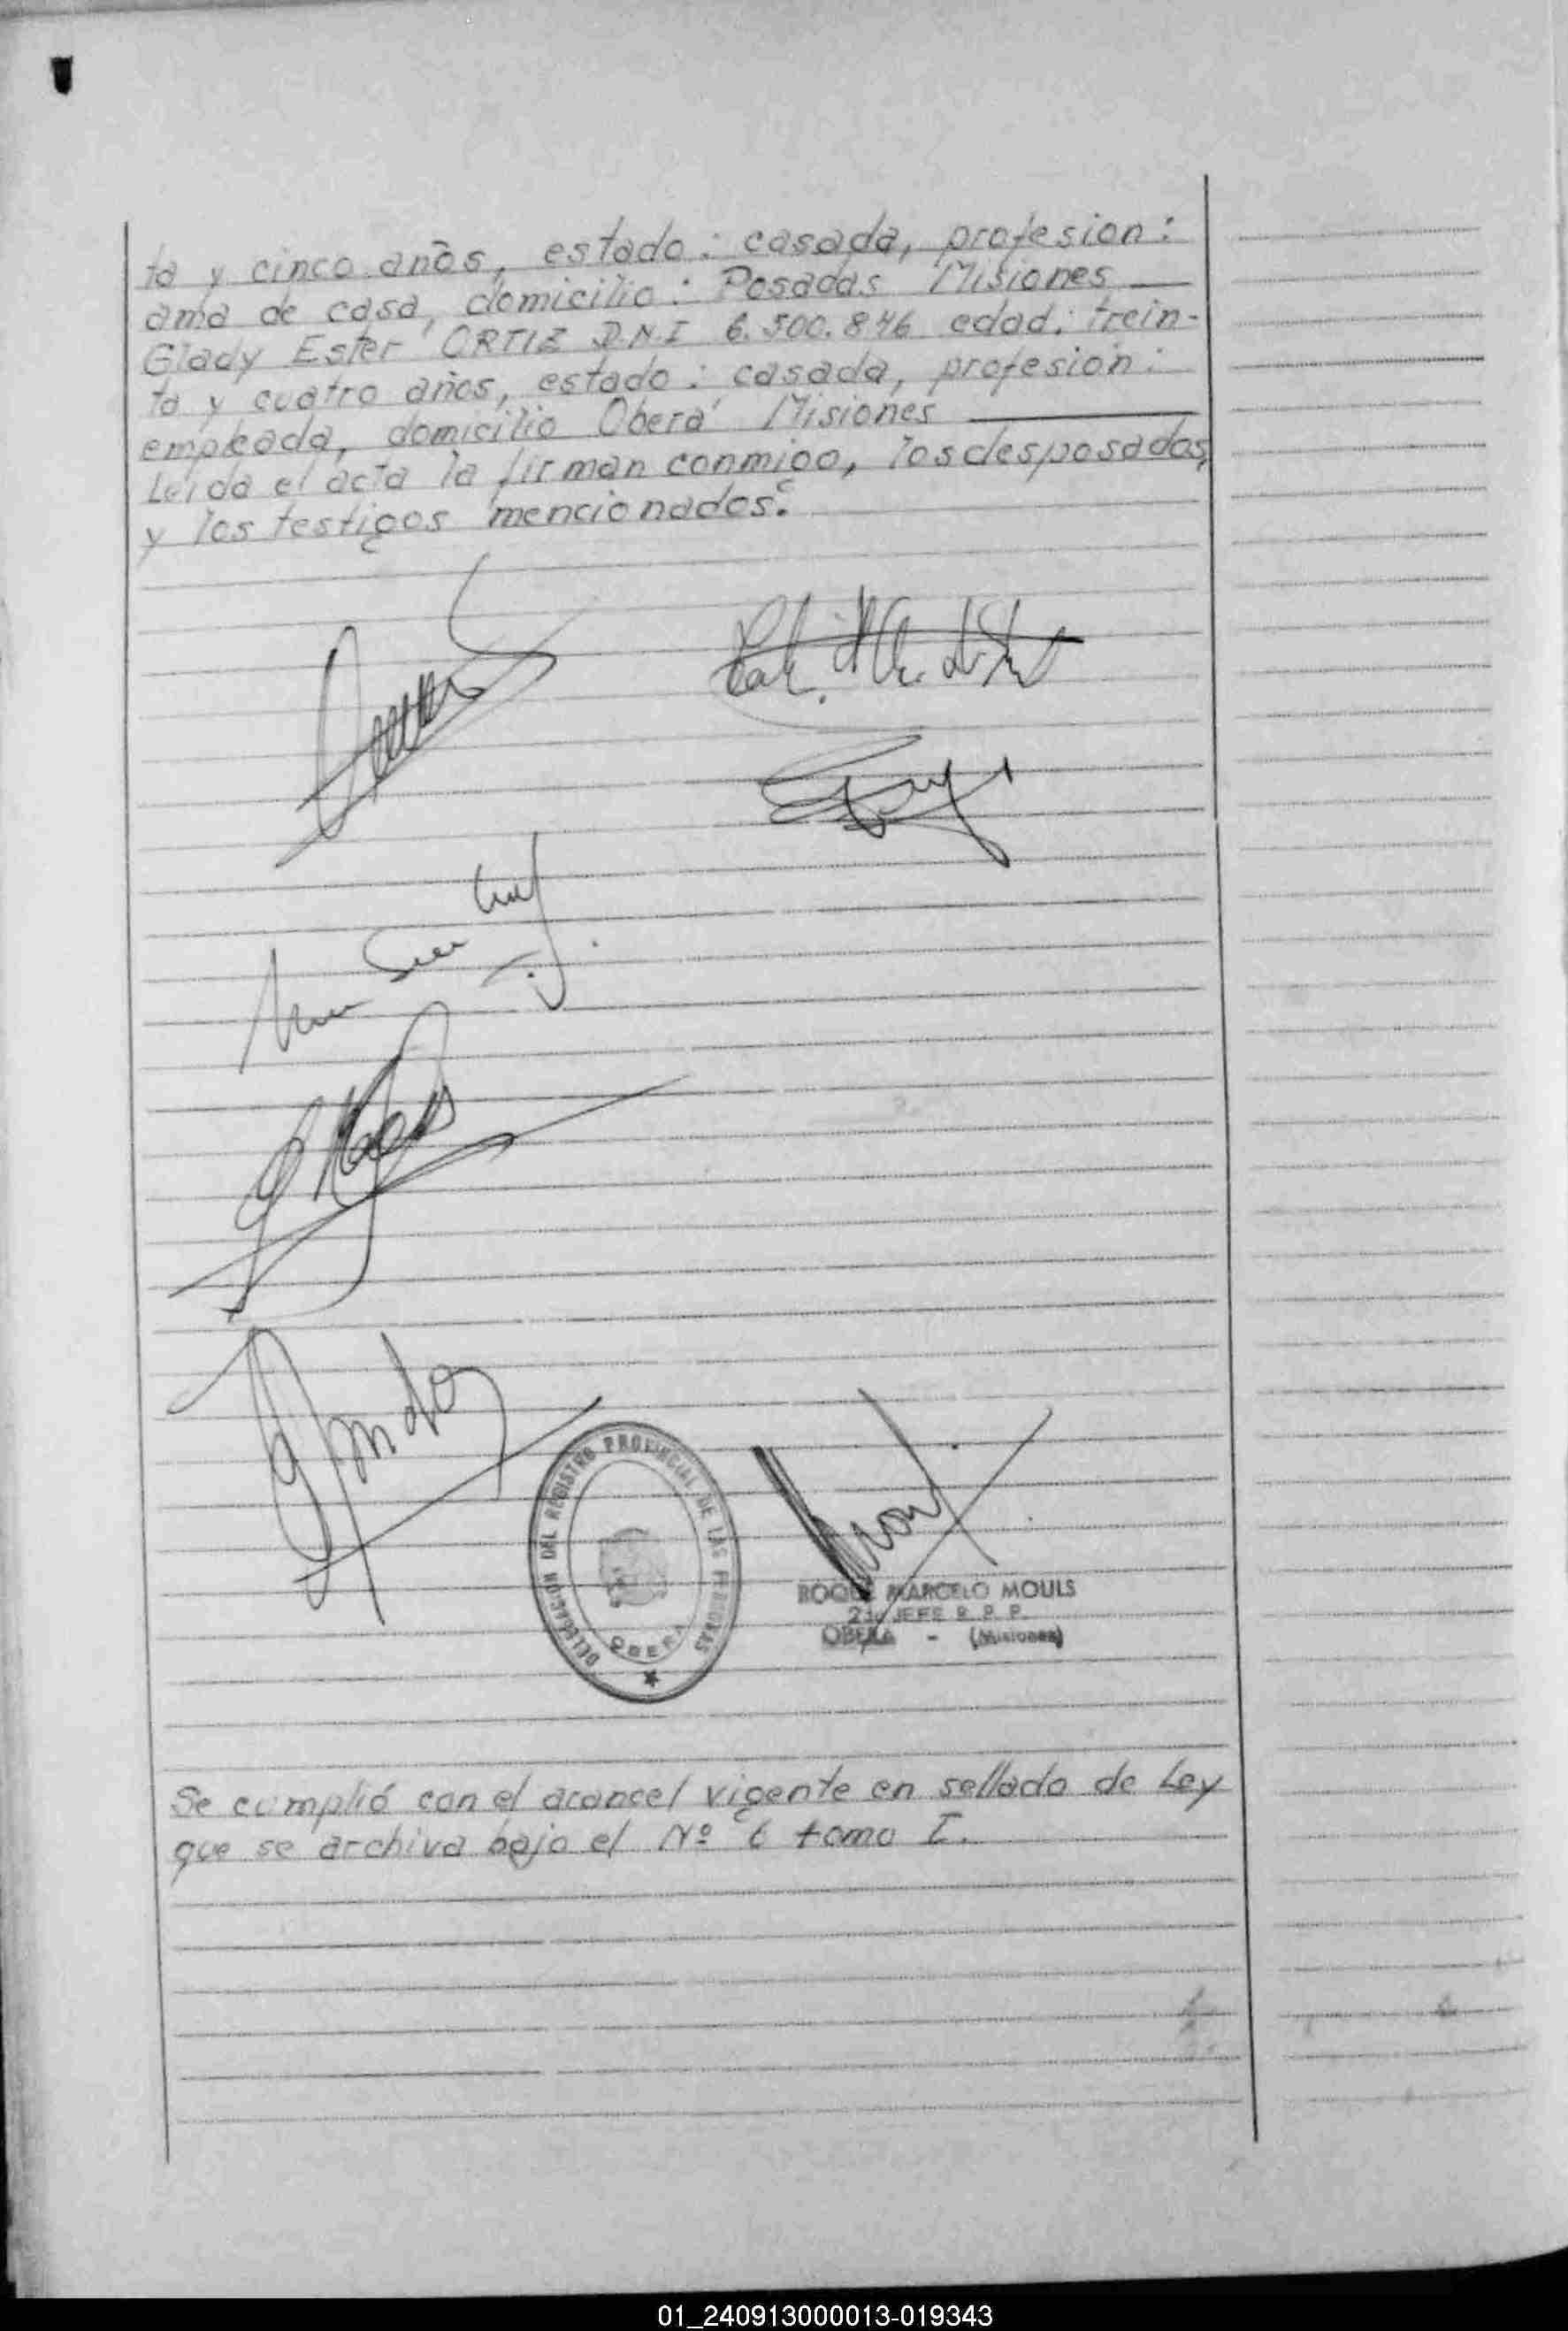 ta y cinco años, estado: casada, profesion:
ama de casa, domicilio: Posadas Misiones
Glady Ester ORTIZ D.N.I 6.500.846 edad: trein-
ta y cuatro años, estado: casada, profesión:
empleada, domicilio Oberá Misiones
Leida el acta la firman conmigo, los desposados,
y los testigos mencionados.
DELEGACION DEL REGISTRO PROVINCIAL DE LAS PERSONAS
OBERA
ROQUE MARCELO MOULS
JEFE R. P. P.
OBERA - (Misiones)
Se cumplió con el arancel vigente en sellado de Ley
que se archiva bajo el Nº 6 tomo I.
01_240913000013-019343